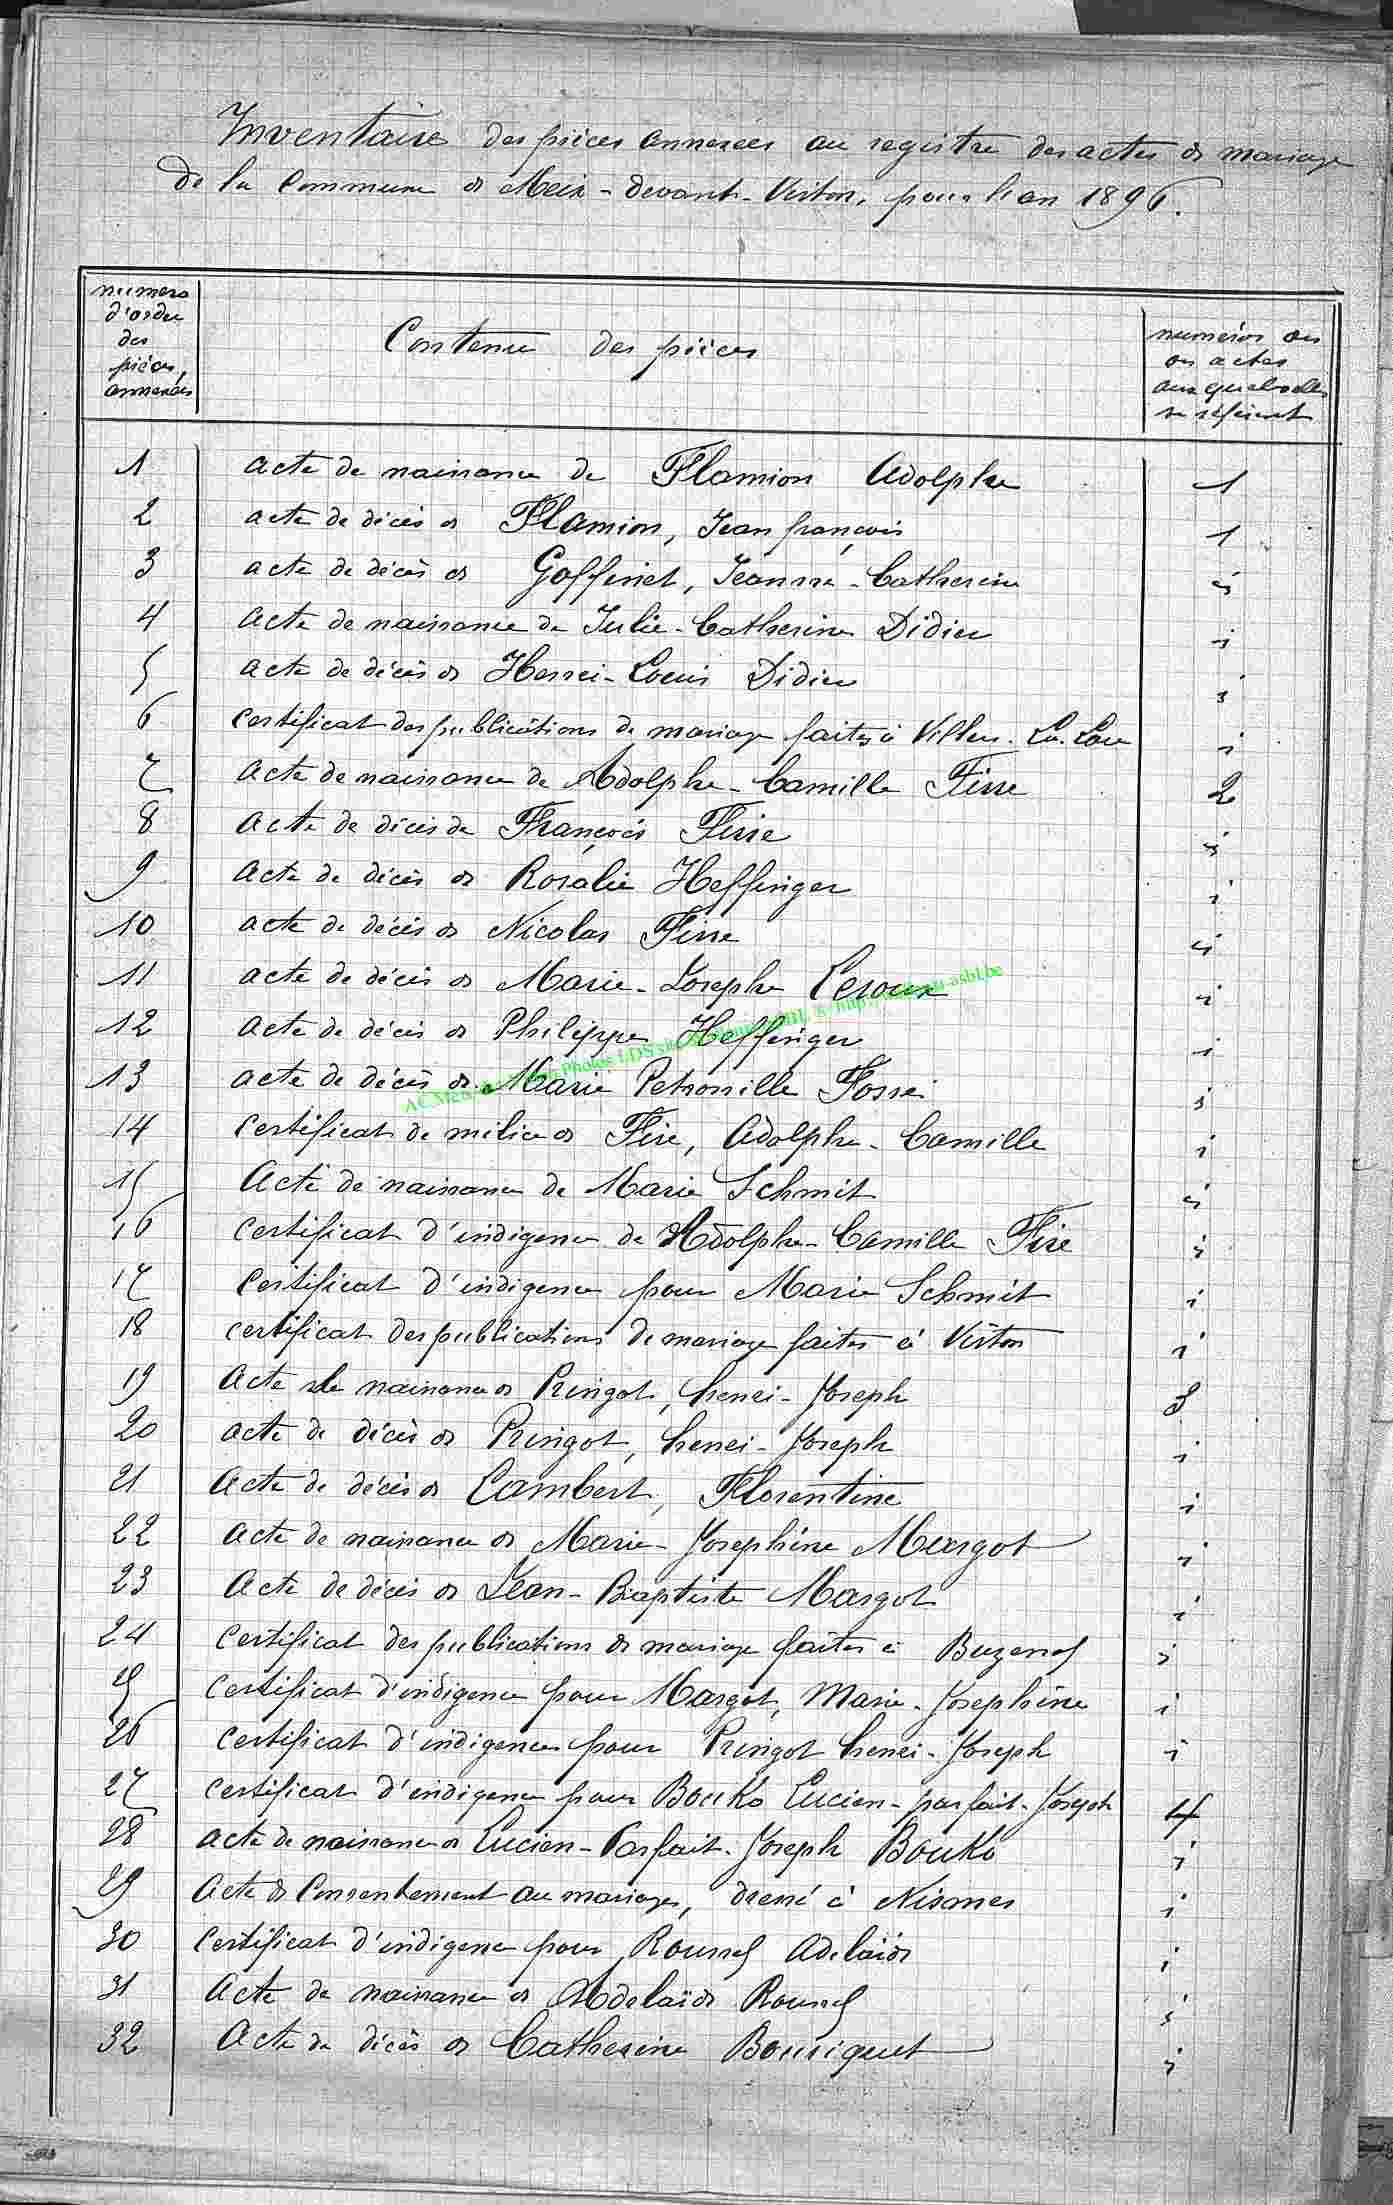 Inventaire des pièces annexées au registre des actes de mariage
de la Commune de Meix-devant-Virton, pour l'an 1896.
numero
d'ordre
des
pièces,
annexées
Contenu des pièces
numéros des
des actes
auxquels elles
se réfèrent
1 acte de naissance de Flamion Adolphe 1
2 acte de décès de Flamion, Jean françois 1
3 acte de décès de Goffinet, Jeanne-Catherine i
4 acte de naissance de Julie-Catherine Didier i
5 acte de décès de Henri-Louis Didier i
6 certificat des publications de mariage faites à Villers-La-Loue i
7 acte de naissance de Adolphe-Camille Fisse 2
8 acte de décès de François Fisse i
9 acte de décès de Rosalie Heffinger i
10 acte de décès de Nicolas Fisse i
11 acte de décès de Marie-Josephe Leroux i
12 acte de décès de Philippe Heffinger i
13 acte de décès de Marie Petronille Fosse i
14 certificat de milice de Fise, Adolphe-Camille i
15 Acte de naissance de Marie Schmit i
16 certificat d'indigence de Adolphe-Camille Fise i
17 certificat d'indigence pour Marie Schmit i
18 certificat des publications de mariage faites à Virton i
19 Acte de naissance de Pringot, henri-Joseph 3
20 acte de décès de Pringot, henri-Joseph i
21 Acte de décès de Lambert, Florentine i
22 acte de naissance de Marie-Joséphine Margot i
23 Acte de décès de Jean-Baptiste Margot i
24 certificat des publications de mariage faites à Buzenol i
25 certificat d'indigence pour Margot, Marie-Josephine i
26 certificat d'indigence pour Pringot henri-Joseph i
27 certificat d'indigence pour Bouko Lucien-parfait-Joseph 4
28 acte de naissance de Lucien-Parfait-Joseph Bouko i
29 Acte de Consentement au mariage, dressé à Nismes i
30 certificat d'indigence pour Roussel Adelaïde i
31 Acte de naissance de Adelaïde Roussel i
32 Acte de décès de Catherine Bourguet i